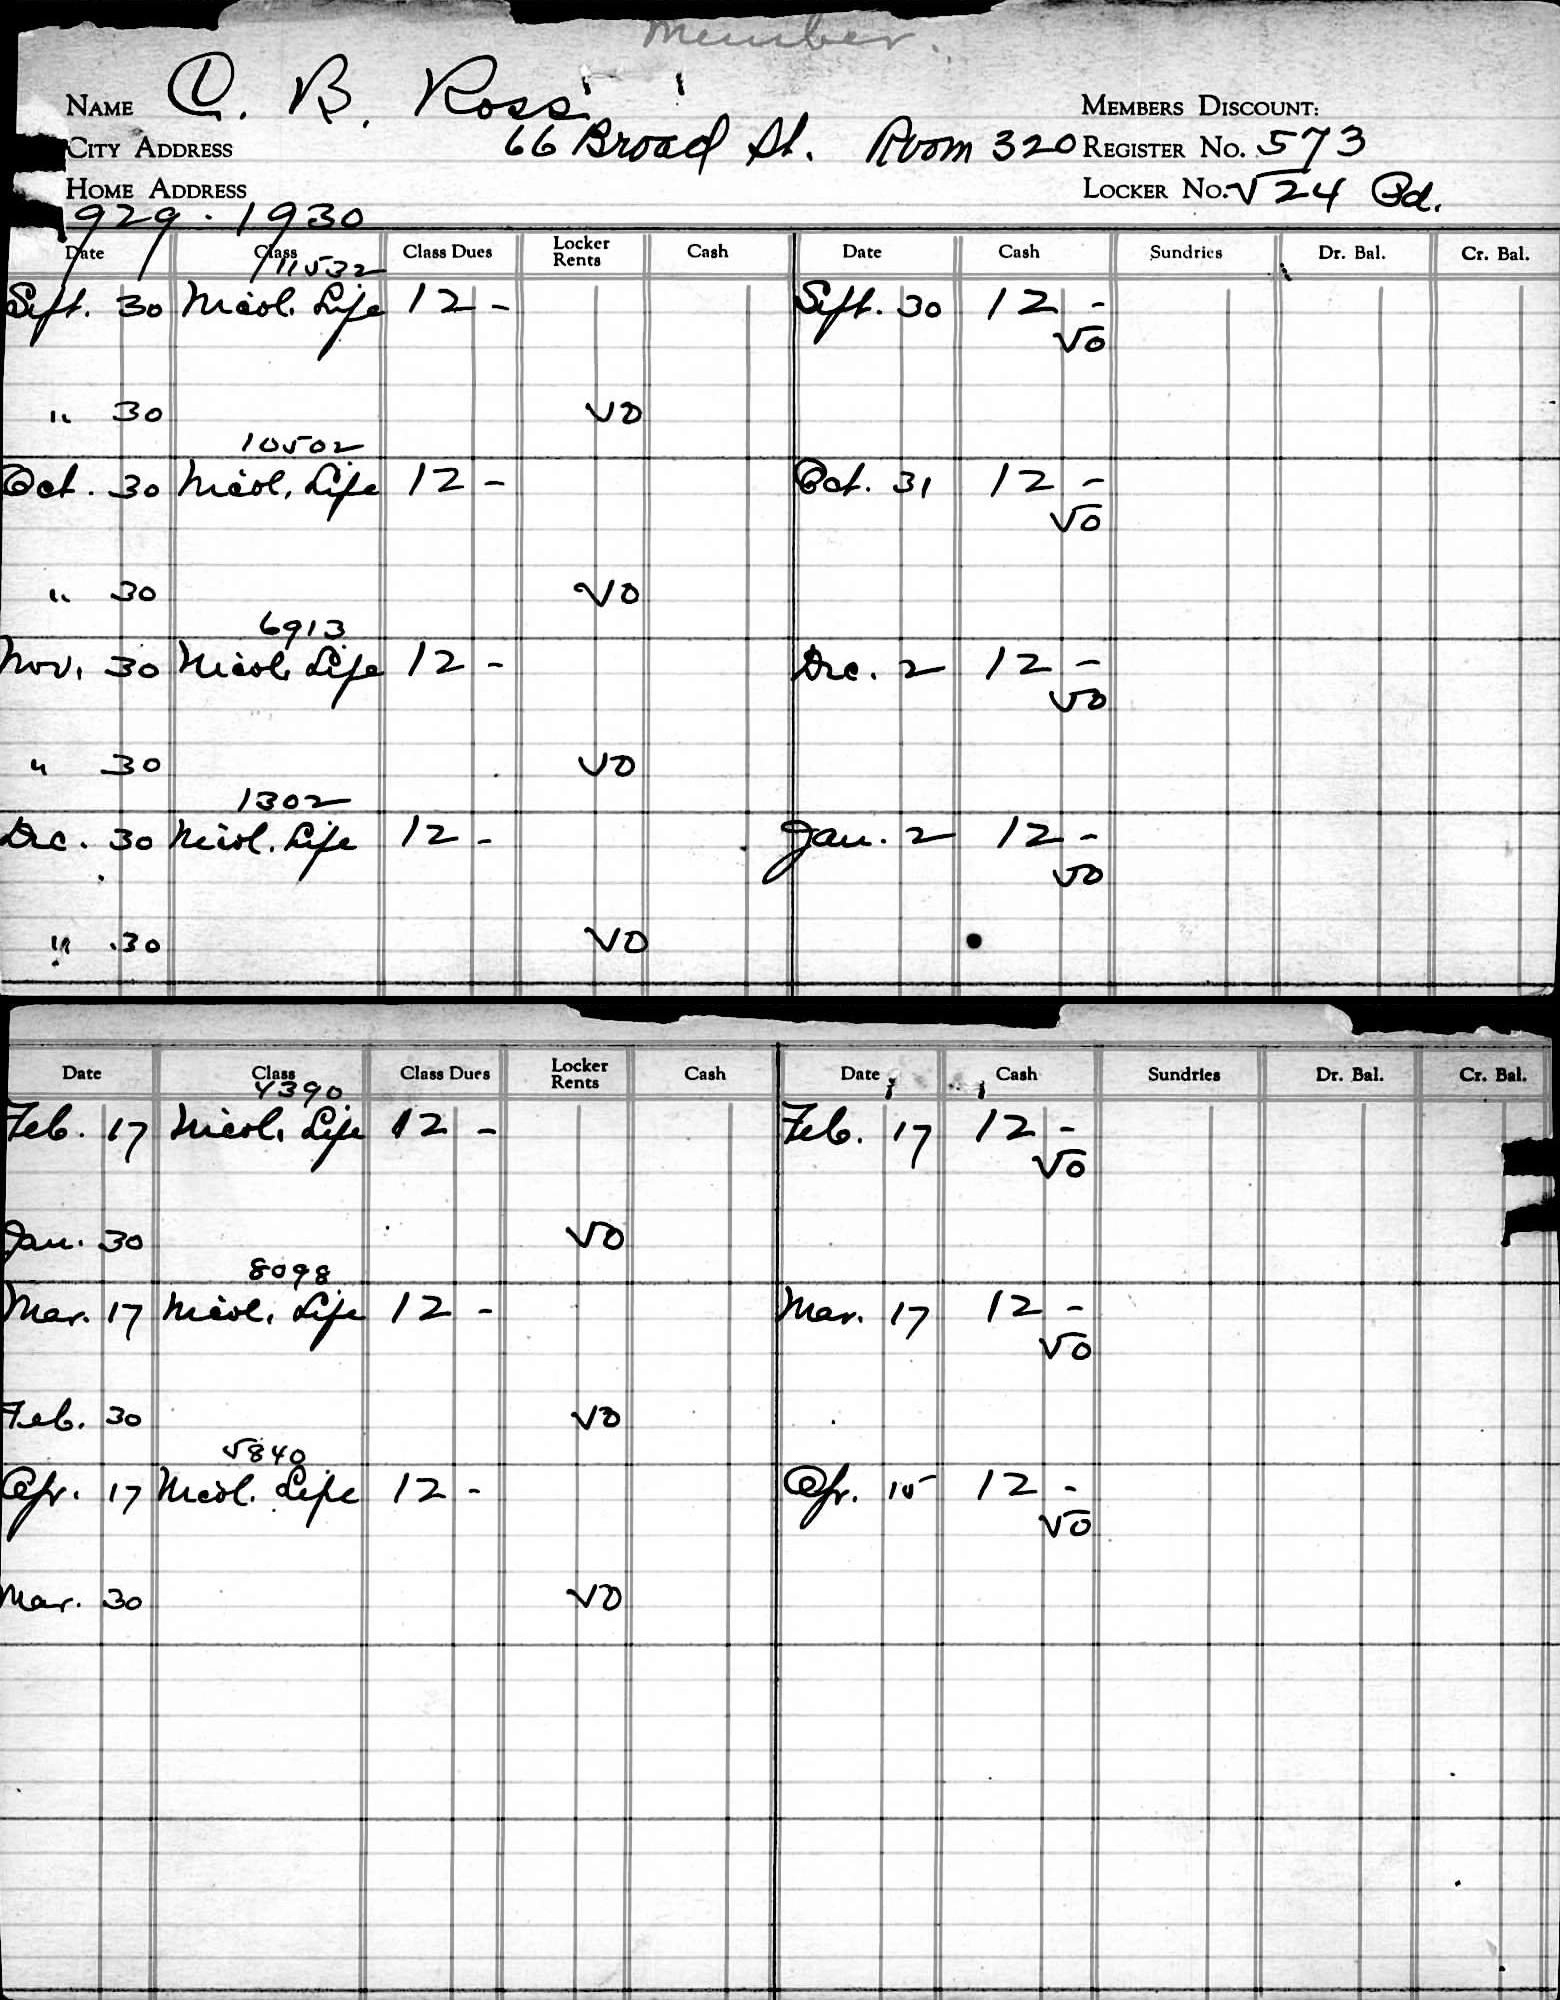 Member.
NAME C. B. Ross
CITY ADDRESS 66 Broad St. Room 320
HOME ADDRESS
MEMBERS DISCOUNT:
REGISTER NO. 573
LOCKER NO. 524 Pd.
1929 - 1930
Date Class Class Dues Locker Rents Cash Date Cash Sundries Dr. Bal. Cr. Bal.
11532
Sept. 30 Life 12 - Sept. 30 12 -
50
" 30 50
10502
Oct. 30 Life 12 - Oct. 31 12 -
50
" 30 50
6913
Nov. 30 Life 12 - Dec. 2 12 -
50
" 30 50
1302
Dec. 30 Life 12 - Jan. 2 12 -
50
" 30 50
Date Class Class Dues Locker Rents Cash Date Cash Sundries Dr. Bal. Cr. Bal.
4390
Feb. 17 Life 12 - Feb. 17 12 -
50
Jan. 30 50
8098
Mar. 17 Life 12 - Mar. 17 12 -
50
Feb. 30 50
5840
Apr. 17 Life 12 - Apr. 15 12 -
50
Mar. 30 50